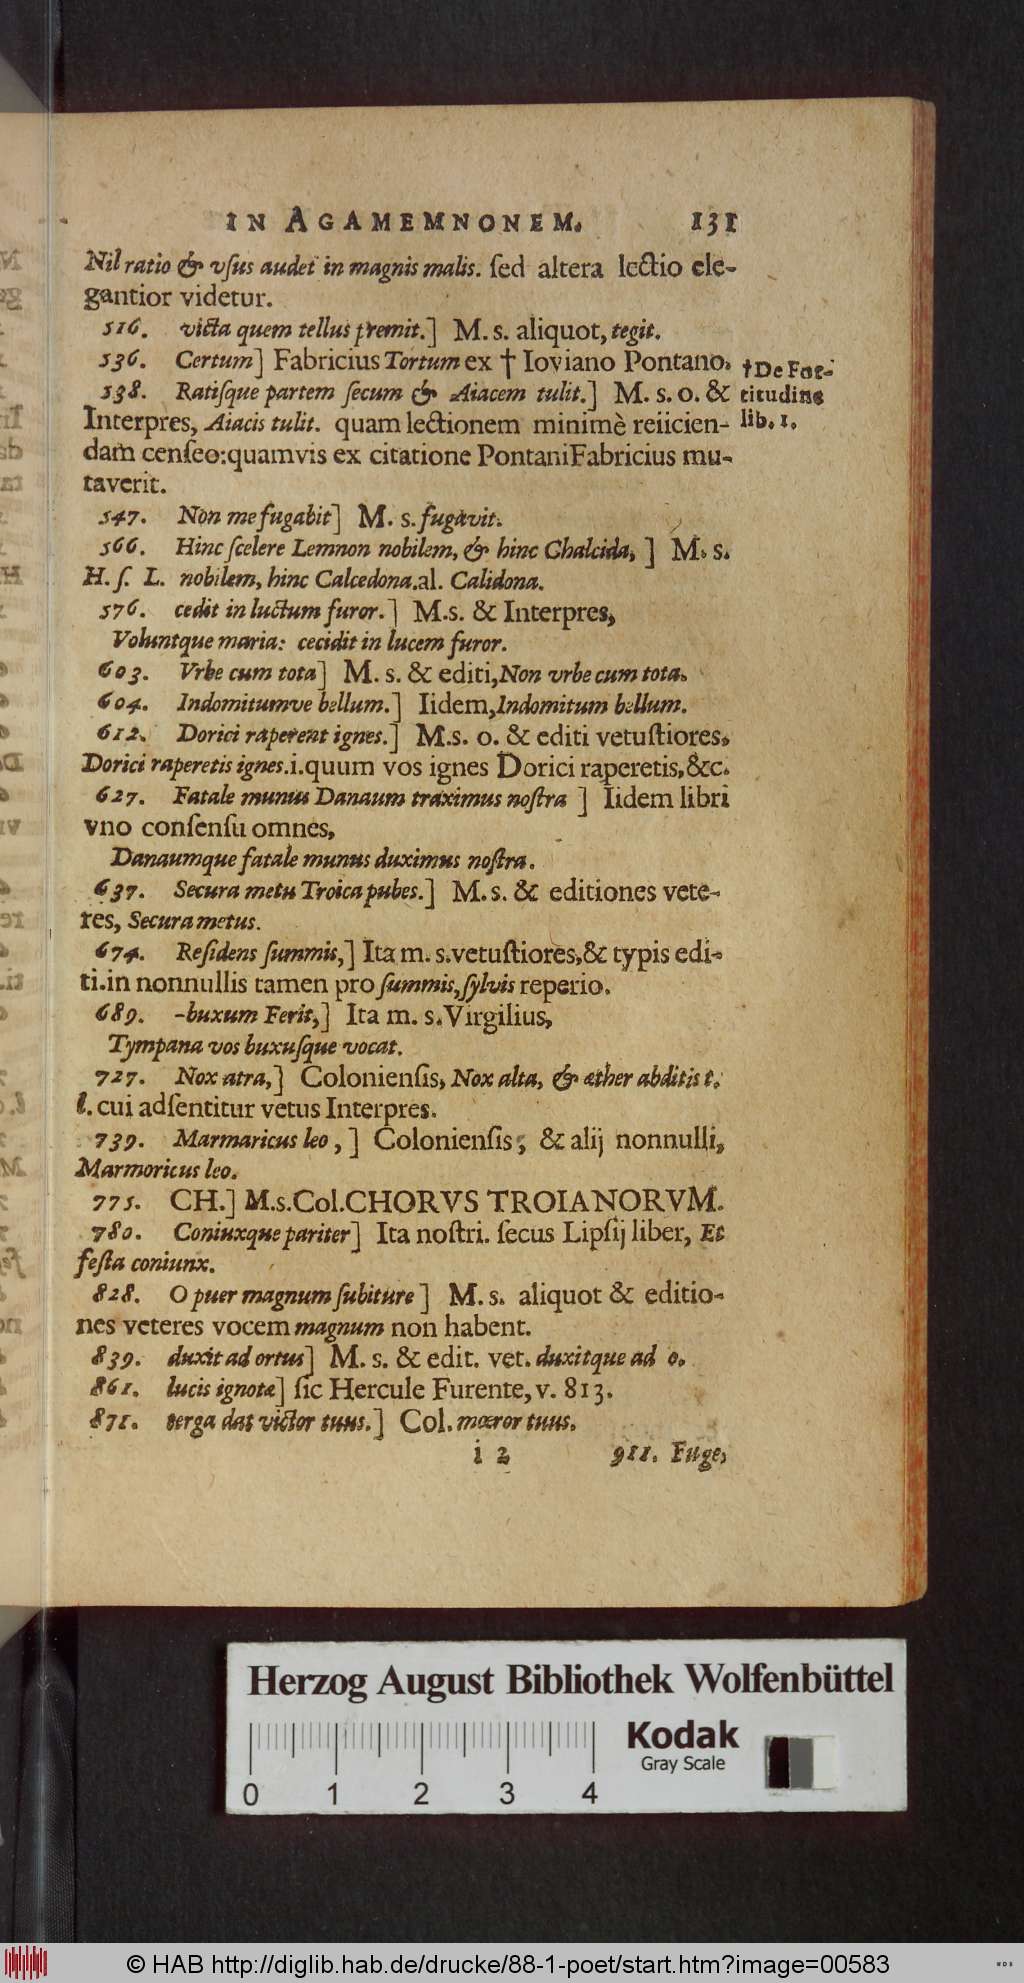 IN AGAMEMNONEM. 131
Nil ratio & vſus audet in magnis malis. ſed altera lectio ele-
gantior videtur.
516. victa quem tellus premit.] M. s. aliquot, tegit.
536. Certum] Fabricius Tortum ex † Ioviano Pontano.
538. Ratiſque partem ſecum & Aiacem tulit.] M. s. o. &
Interpres, Aiacis tulit. quam lectionem minimè reiicien-
dam cenſeo: quamvis ex citatione Pontani Fabricius mu-
taverit.
†De For-
titudine
lib. 1.
547. Non me fugabit] M. s. fugavit.
566. Hinc ſcelere Lemnon nobilem, & hinc Chalcida, ] M. s.
H. ſ. L. nobilem, hinc Calcedona. al. Calidona.
576. cedit in luctum furor.] M.s. & Interpres,
Voluntque maria: cecidit in lucem furor.
603. Vrbe cum tota] M. s. & editi, Non vrbe cum tota.
604. Indomitumve bellum.] Iidem, Indomitum bellum.
612. Dorici raperent ignes.] M.s. o. & editi vetuſtiores,
Dorici raperetis ignes. i. quum vos ignes Dorici raperetis, &c.
627. Fatale munus Danaum traximus noſtra ] Iidem libri
vno conſenſu omnes,
Danaumque fatale munus duximus noſtra.
637. Secura metu Troica pubes.] M. s. & editiones vete-
res, Secura metus.
674. Reſidens ſummis,] Ita m. s. vetuſtiores, & typis edi-
ti. in nonnullis tamen pro ſummis, ſylvis reperio.
689. -buxum Ferit,] Ita m. s. Virgilius,
Tympana vos buxuſque vocat.
727. Nox atra,] Colonienſis, Nox alta, & æther abditis t.
l. cui adſentitur vetus Interpres.
739. Marmaricus leo, ] Colonienſis, & alij nonnulli,
Marmoricus leo.
775. CH.] M.s. Col. CHORVS TROIANORVM.
780. Coniuxque pariter] Ita noſtri. ſecus Lipſij liber, Et
feſta coniunx.
828. O puer magnum ſubiture ] M. s. aliquot & editio-
nes veteres vocem magnum non habent.
839. duxit ad ortus] M. s. & edit. vet. duxitque ad o.
861. lucis ignotæ] ſic Hercule Furente, v. 813.
871. terga dat victor tuus.] Col. mœror tuus.
i 2 911. Fuge,
Herzog August Bibliothek Wolfenbüttel
Kodak
Gray Scale
0 1 2 3 4
© HAB http://diglib.hab.de/drucke/88-1-poet/start.htm?image=00583